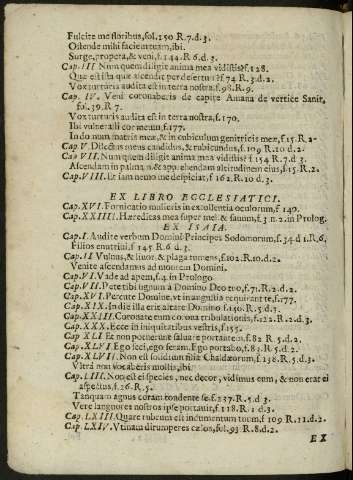 Fulcite me floribus, fol. 250 R. 7. d. 3.
Ostende mihi faciem tuam, ibi.
Surge, propera, & veni, f. 144. R. 6. d. 3.
Cap. III Num quem diligit anima mea vidistis? f. 128.
Quæ est ista quæ ascendit per desertum? f 74 R. 3. d. 2.
Vox turturis audita est in terra nostra, f. 98. R. 9.
Cap. IV. Veni coronaberis de capite Amana de vertice Sanir,
fol. 39. R. 7.
Vox turturis audita est in terra nostra, f. 170.
Ibi vulnerasti cor meum, f. 177.
In domum matris meæ, & in cubiculum genitricis meæ, f. 15 R. 2.
Cap V. Dilectus meus candidus, & rubicundus, f. 109 R. 10 d. 2.
Cap VII. Num quem diligit anima mea vidistis? f. 154 R. 7. d. 3.
Ascendam in palmam & apprehendam altitudinem eius, f. 15 R. 2.
Cap. VIII. Et iam nemo me despiciat, f 162. R. 10 d. 3.
EX LIBRO ECCLESTATICI.
Cap. XVI. Fornicatio mulieris in extollentia oculorum, f 149.
Cap. XXIIII. Hæreditas mea super mel & fauum, f. 3 n. 2. in Prolog.
EX ISAIA.
Cap. I. Audite verbum Domini Principes Sodomorum, f. 34 d 1. R. 6.
Filios enutriui, f 145. R 6. d 3.
Cap. II Vulnus, & liuor, & plaga tumens, f 102. R. 10. d. 2.
Venite ascendamus ad montem Domini.
Cap. VI. Vade ad apem, f. 4. in Prologo.
Cap. VII. Pete tibi signum à Domino Deo tuo, f. 71. R. 2. d. 2.
Cap. XVI. Percute Domine, vt in angustia requirant te, f. 177.
Cap. XIX. In die illa erit altare Domino f. 140. R. 5 d. 3.
Cap. XXIII. Coronate eum corona tribulationis, f. 122. R. 2. d. 3.
Cap. XXX. Ecce in iniquitatibus vestris, f. 155.
Cap XLI Et non poterunt saluare portantem, f. 82 R 5. d. 2.
Cap. XLVI. Ego feci, ego feram. Ego portabo, f. 82. R. 5. d. 2.
Cap. XLVII. Non est solidium filiæ Chaldæorum, f. 238. R. 5. d. 3.
Vltra non vocaberis mollis, ibi.
Cap. LIII. Non est ei species, nec decor, vidimus eum, & non erat ei
aspectus, f. 26. R. 5.
Tanquam agnus coram tondente se. f. 237. R. 5. d 3.
Vere languores nostros ipse portauit, f. 218. R. 1 d. 3.
Cap. LXIII. Quare rubrum est indumentum tuum, f 109 R. 11. d. 2.
Cap. LXIV. Vtinam dirumperes cælos, fol. 93 R. 8. d. 2.
EX